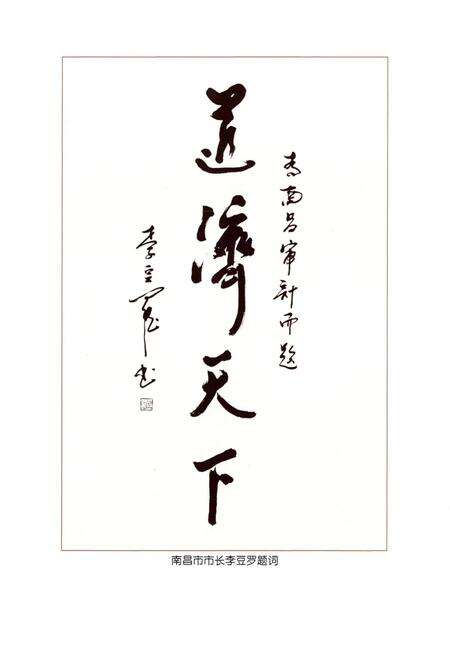 为南昌审计而题
道济天下
李豆罗书
南昌市市长李豆罗题词